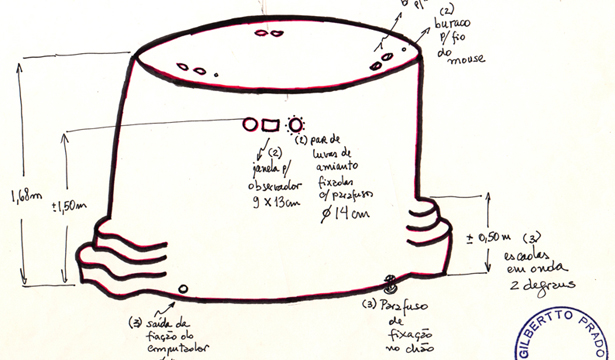 (2)
buraco
p/ fio
do
mouse
(2)
janela p/
observador
9 x 13 cm
(2) par de
luvas de
amianto
fixadas
c/ parafusos
ø 14 cm
1,68m
±1,50m
± 0,50m (3)
escadas
em onda
2 degraus
(3) saída da
fiação do
computador
(3) Parafuso
de
fixação
no chão
GILBERTTO PRADO